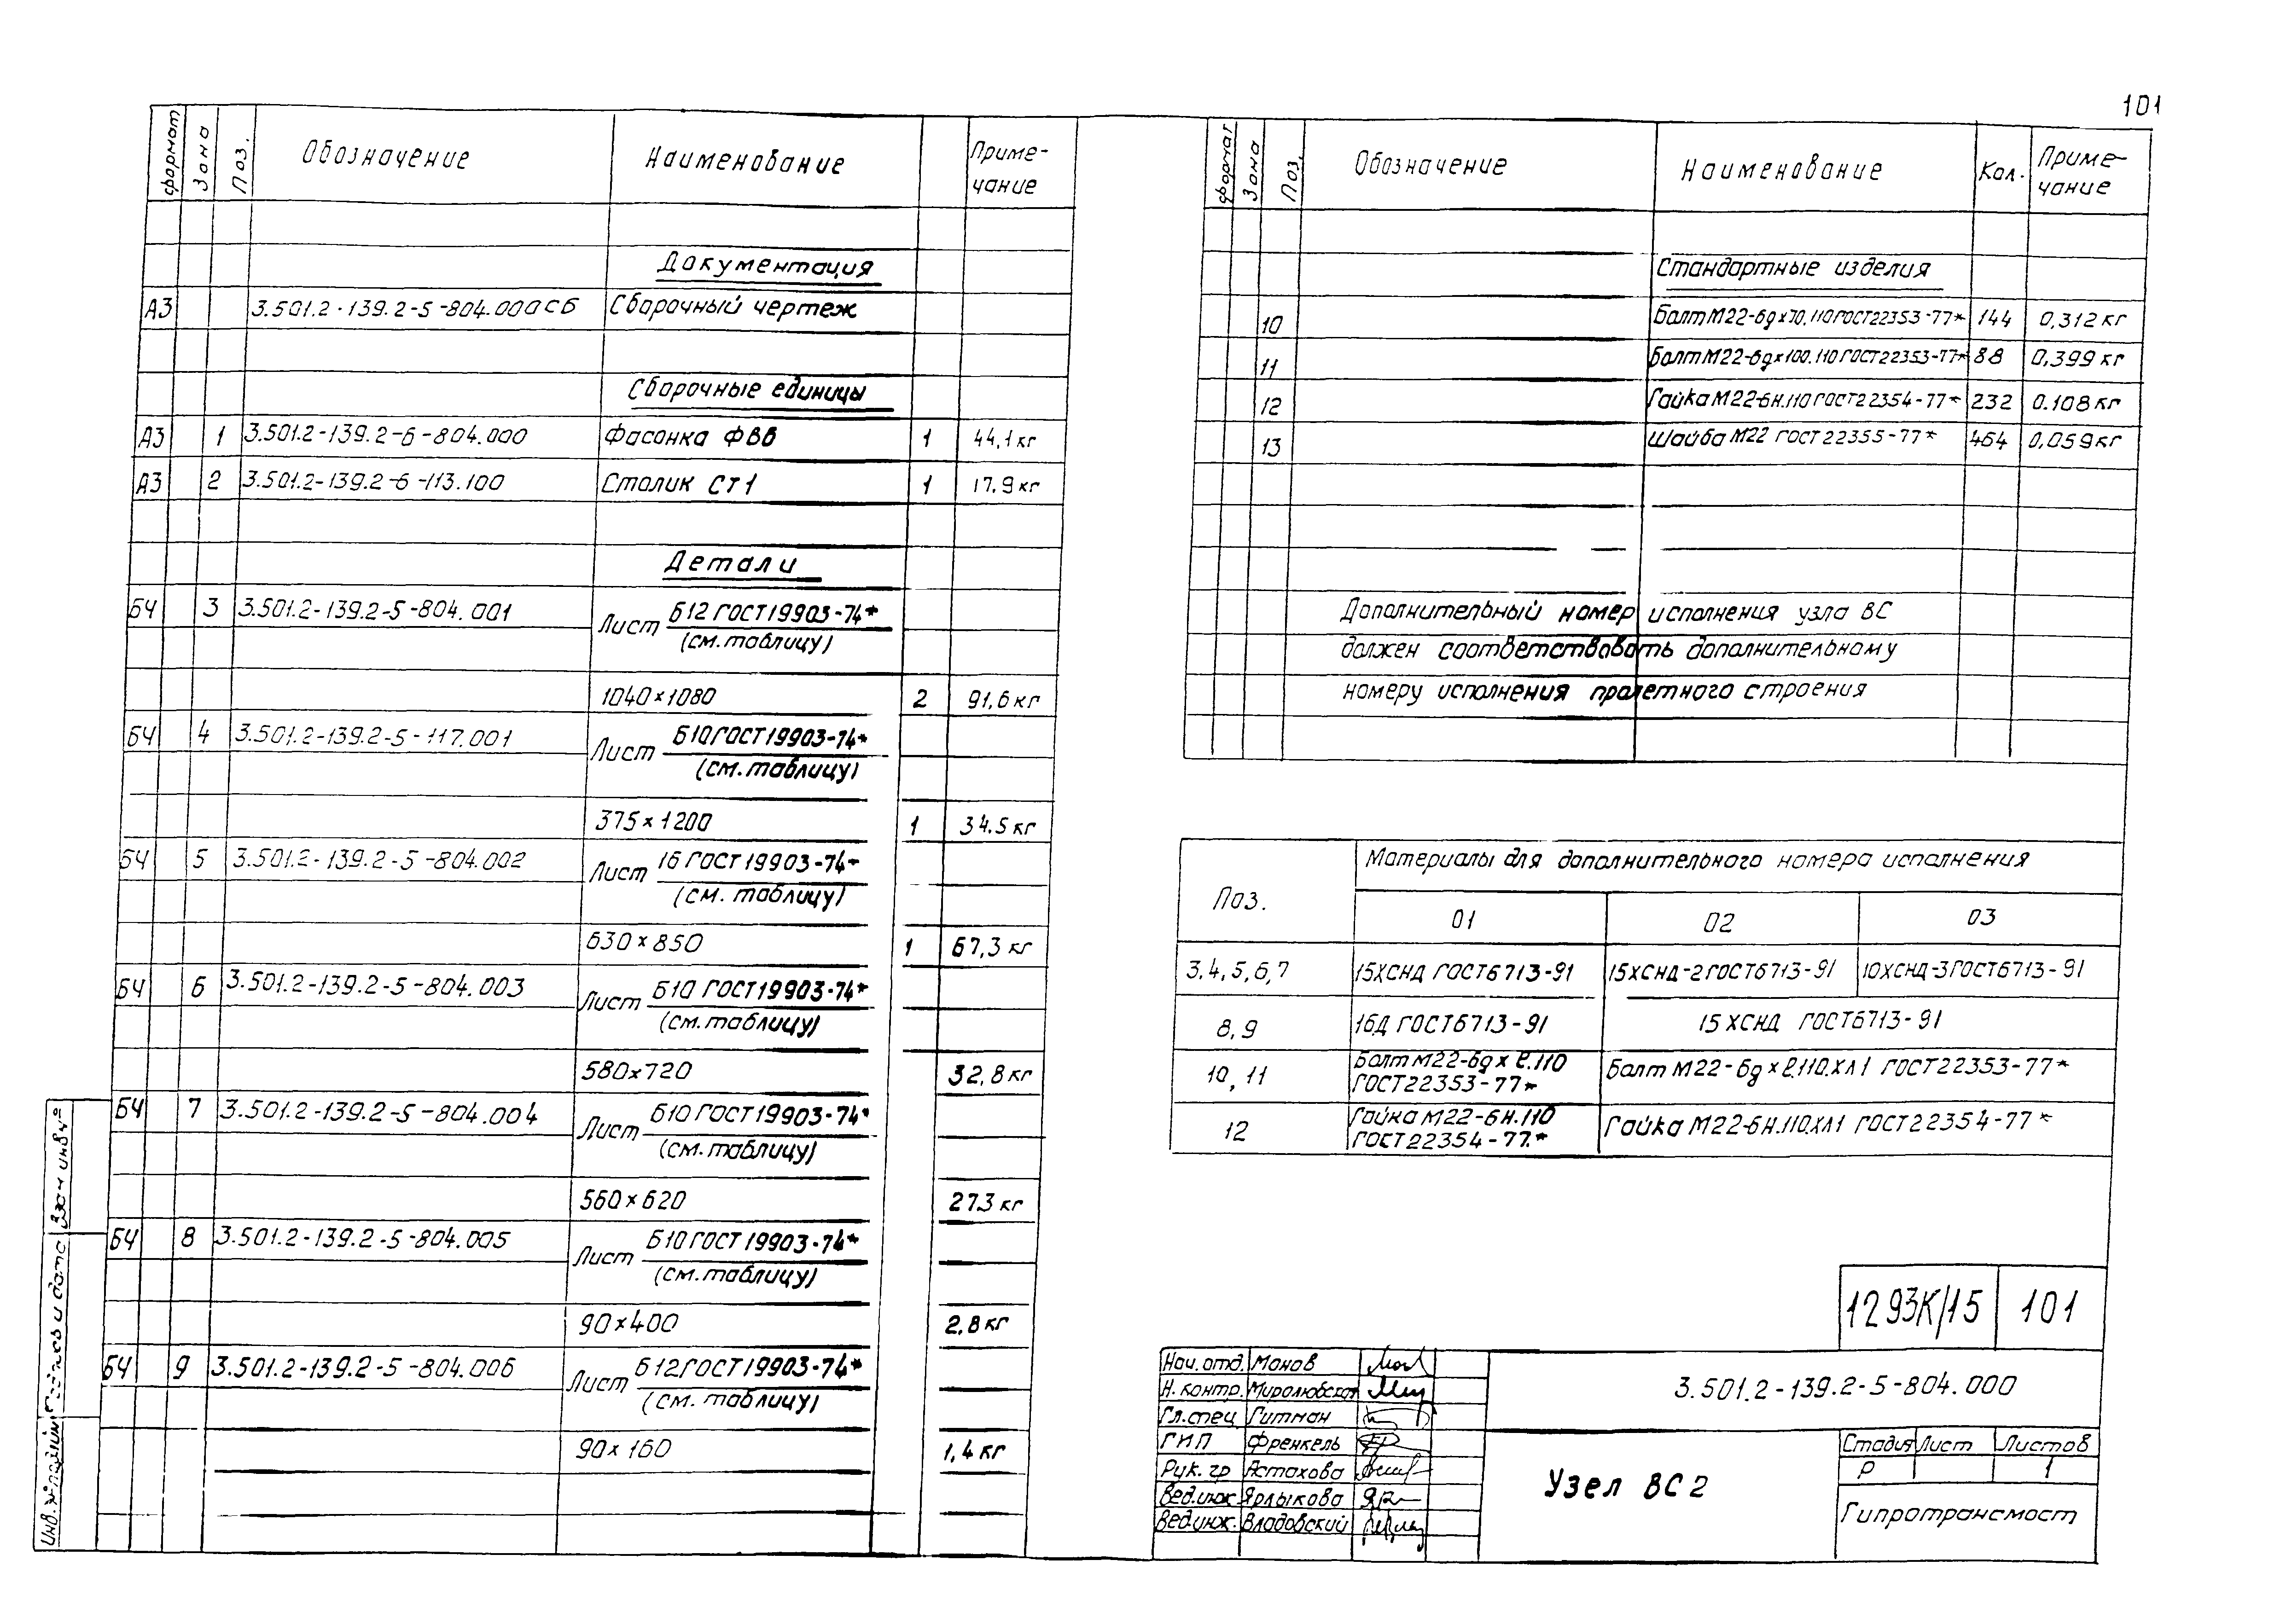 101
формат Зона Поз. Обозначение Наименование Приме-
чание
Документация
А3 3.501.2-139.2-5-804.000СБ Сборочный чертеж
Сборочные единицы
А3 1 3.501.2-139.2-6-804.000 Фасонка ФВ6 1 44,1 кг
А3 2 3.501.2-139.2-6-113.100 Столик Ст1 1 17.9 кг
Детали
БЧ 3 3.501.2-139.2-5-804.001 Лист Б12 ГОСТ19903-74*
(см.таблицу)
1040×1080 2 91,6 кг
БЧ 4 3.501.2-139.2-5-117.001 Лист Б10 ГОСТ19903-74*
(см.таблицу)
375×1200 1 34.5 кг
БЧ 5 3.501.2-139.2-5-804.002 Лист 16 ГОСТ19903-74*
(см. таблицу)
630×850 1 67,3 кг
БЧ 6 3.501.2-139.2-5-804.003 Лист Б10 ГОСТ19903-74*
(см.таблицу)
580×720 32,8 кг
БЧ 7 3.501.2-139.2-5-804.004 Лист Б10 ГОСТ19903-74*
(см.таблицу)
560×620 27.3 кг
БЧ 8 3.501.2-139.2-5-804.005 Лист Б10 ГОСТ19903-74*
(см.таблицу)
90×400 2,8 кг
БЧ 9 3.501.2-139.2-5-804.006 Лист Б12 ГОСТ19903-74*
(см. таблицу)
90×160 1,4 кг
формат Зона Поз. Обозначение Наименование Кол. Приме-
чание
Стандартные изделия
10 Болт М22-6g×70.110 ГОСТ22353-77* 144 0,312 кг
11 Болт М22-6g×100.110 ГОСТ22353-77* 88 0,399 кг
12 Гайка М22-6Н.110 ГОСТ22354-77* 232 0.108 кг
13 Шайба М22 ГОСТ 22355-77* 464 0,059 кг
Дополнительный номер исполнения узла ВС
должен соответствовать дополнительному
номеру исполнения пролетного строения
Поз. Материалы для дополнительного номера исполнения
01 02 03
3,4,5,6,7 15ХСНД ГОСТ6713-91 15ХСНД-2 ГОСТ6713-91 10ХСНД-3 ГОСТ6713-91
8,9 16Д ГОСТ6713-91 15ХСНД ГОСТ6713-91
10, 11 Болт М22-6g×ℓ.110
ГОСТ22353-77* Болт М22-6g×ℓ.110.ХЛ1 ГОСТ22353-77*
12 Гайка М22-6Н.110
ГОСТ22354-77.* Гайка М22-6Н.110.ХЛ1 ГОСТ22354-77*
1293К/15 101
Нач.отд. Монов
Н.контр. Миролюбская
Гл.спец Гитман
ГИП Френкель
Рук.гр Астахова
Вед.инж Ярлыкова
Вед.инж. Владовский
3.501.2-139.2-5-804.000
Узел ВС2
Стадия Лист Листов
Р 1
Гипротрансмост